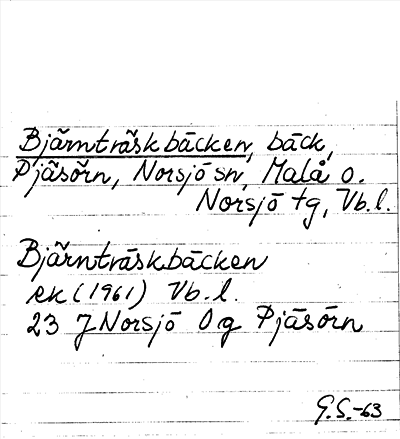 Bjärnträskbäcken, bäck,
Pjäsörn, Norsjö sn, Malå o.
Norsjö tg, Vb.l.
Bjärnträskbäcken
ek (1961) Vb.l.
23 J Norsjö 0g Pjäsörn
G.S.-63